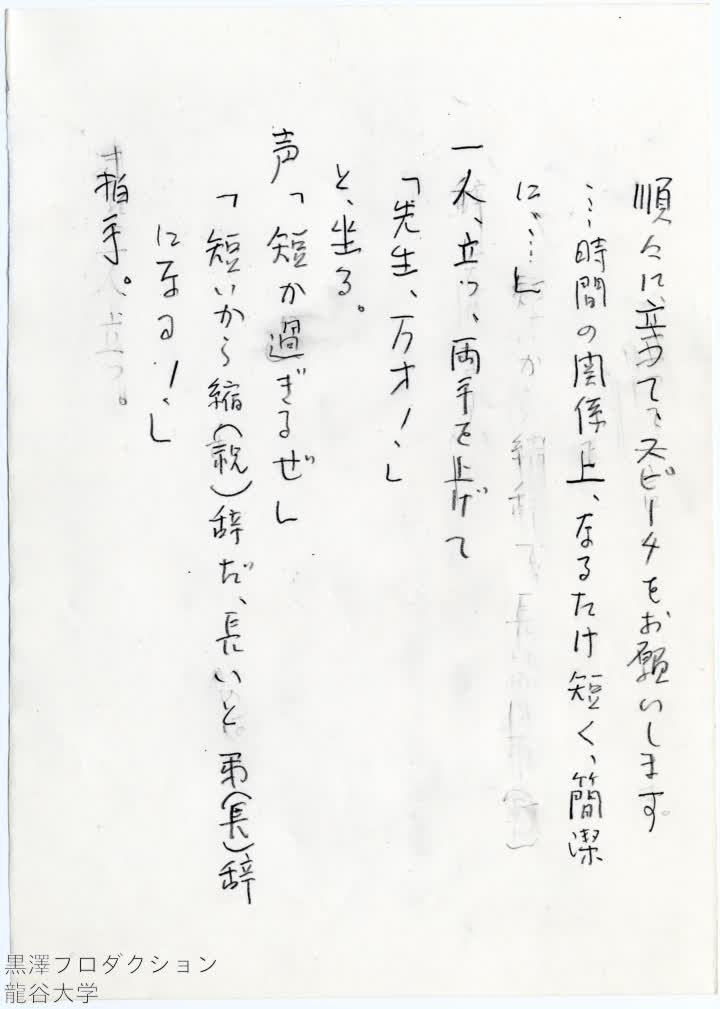 順々に、立ってスピーチをお願いします。
…時間の関係上、なるたけ短く、簡潔
に…」
一人、立つ、両手を上げて
「先生、万才！」
と、坐る。
声「短か過ぎるぜ」
「短いから縮（祝）辞だ、長いと弔（長）辞
になる！」
拍手。
黒澤プロダクション
龍谷大学